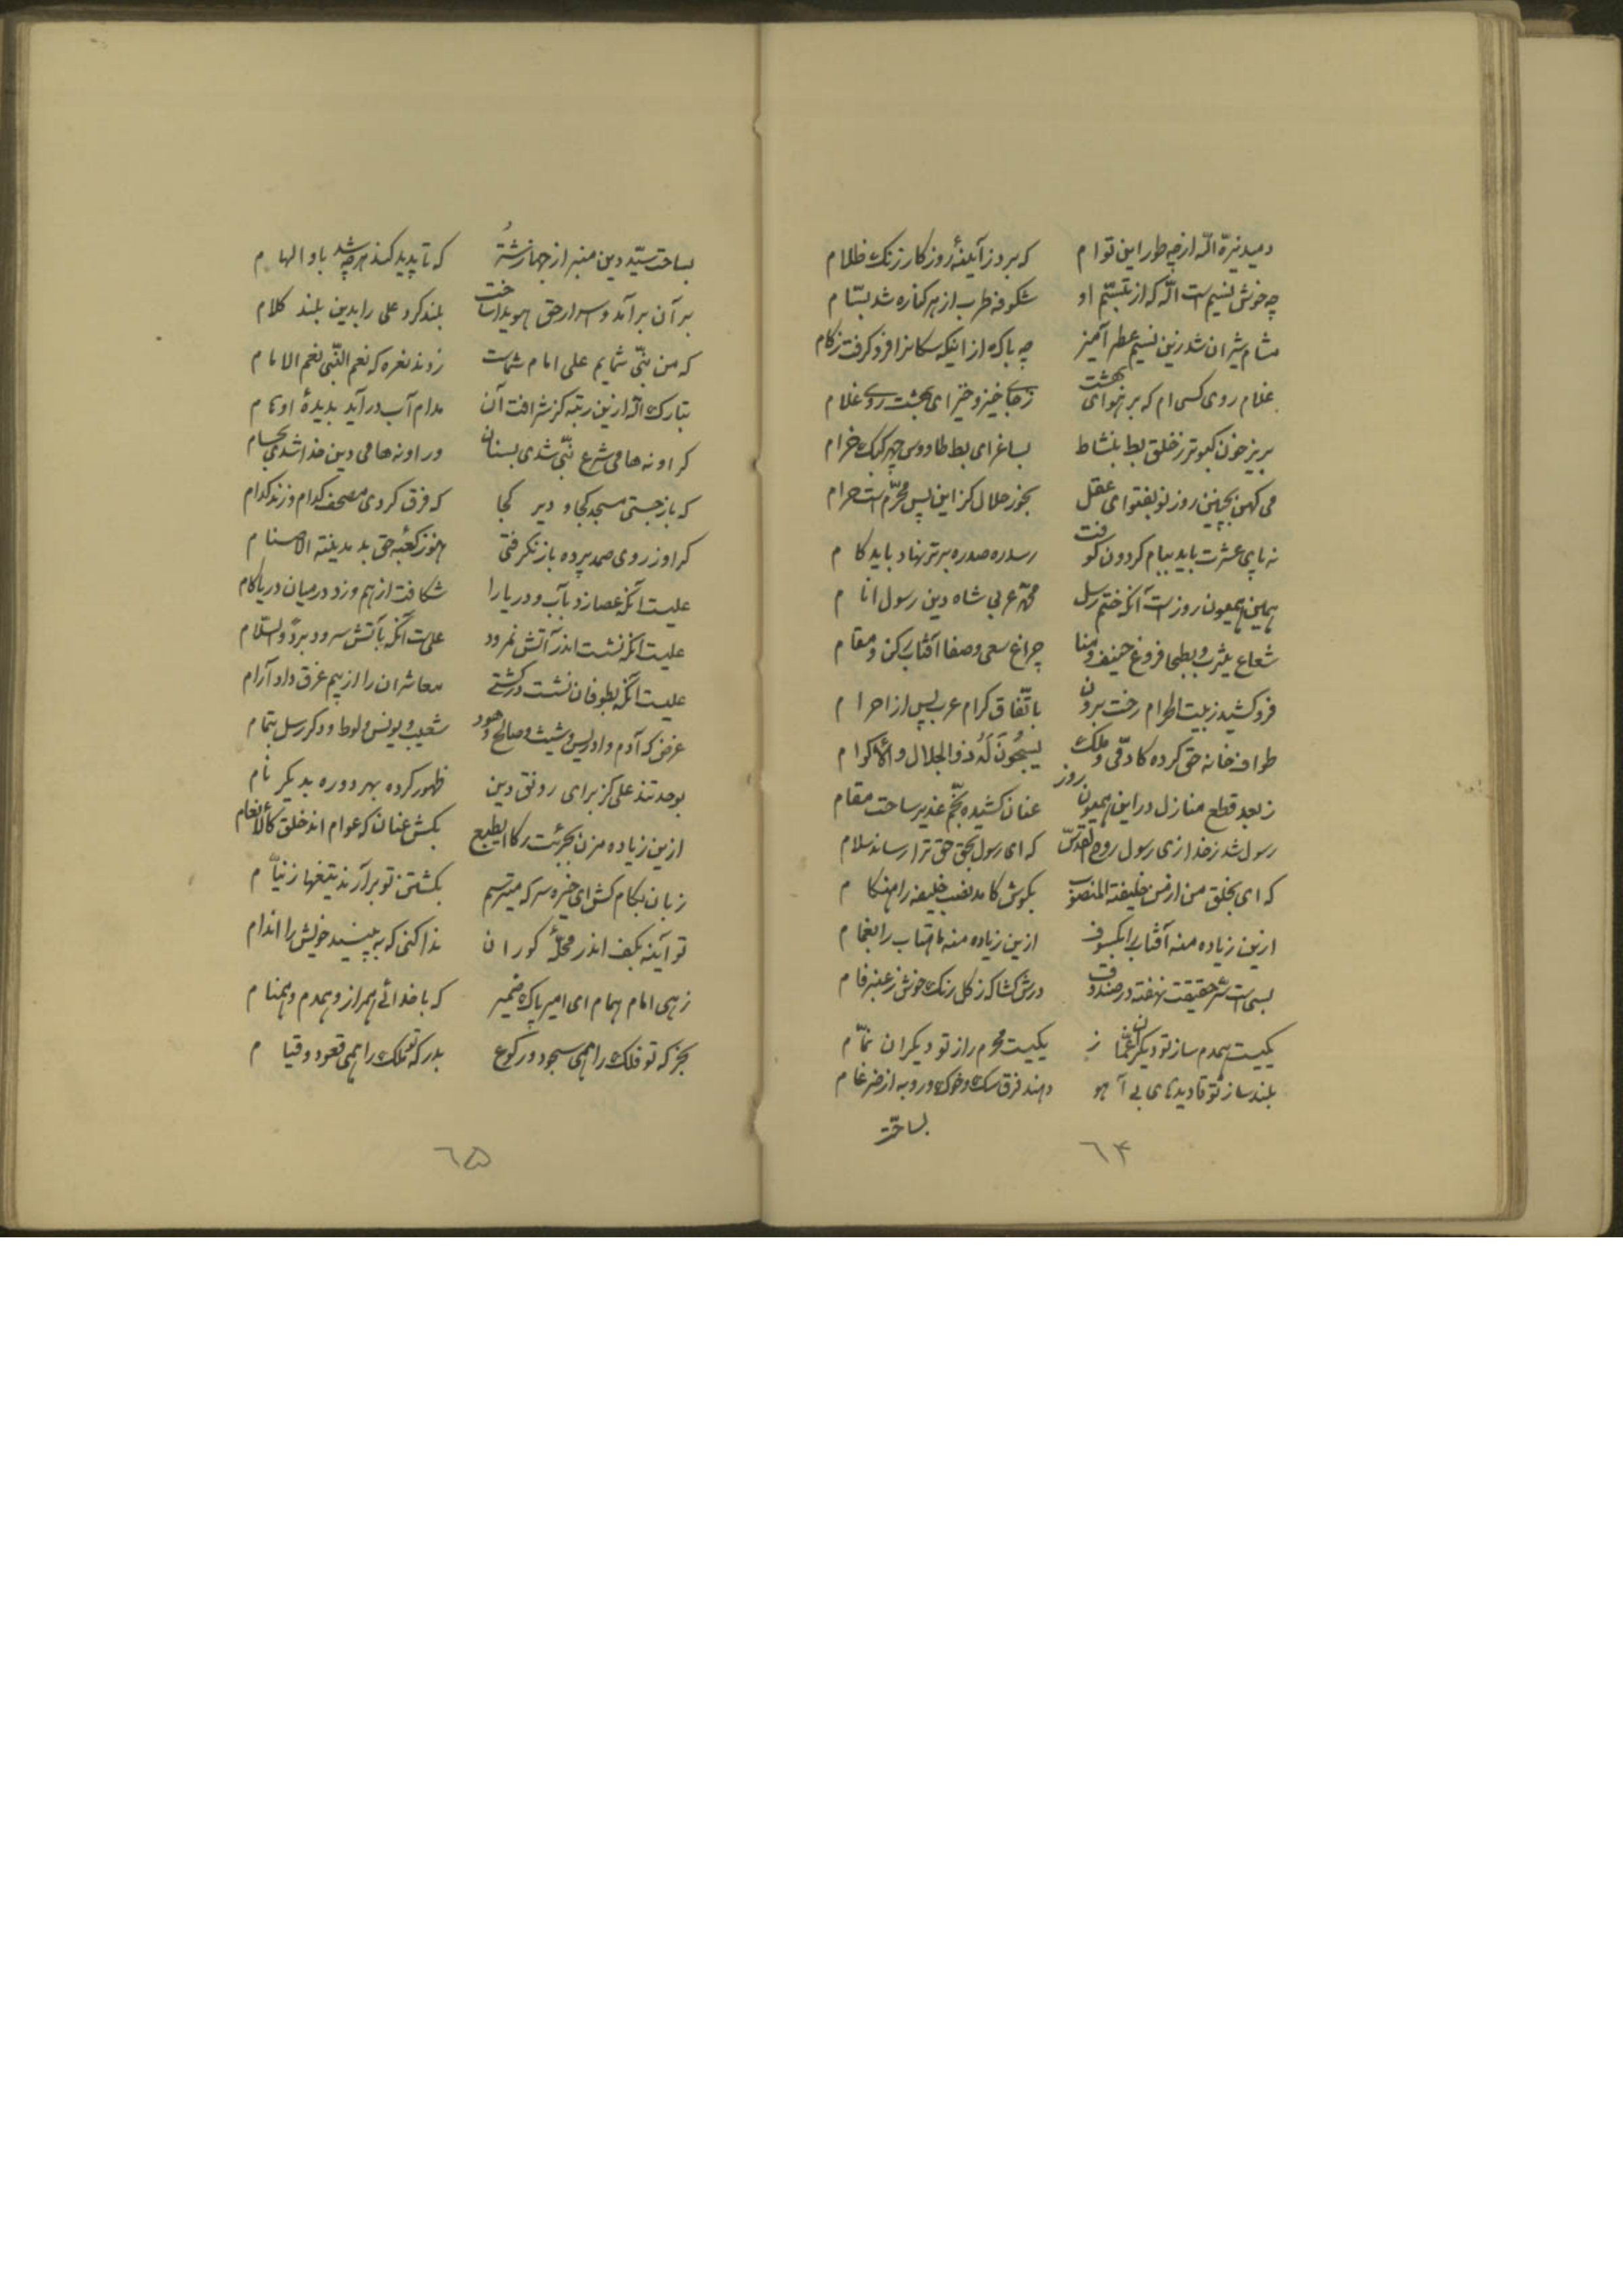 دمید نیرّه اللّه از چه طور این توام که برد ز آینهٔ روزگار زنک ظلام
چه خوش نسیم است اللّه که از تبسّم او شکوفهٔ طرب از هر کناره شد بسّام
مشام شیران شد زین نسیم عطر آمیز چه باک از اینکه سکانرا فرو کرفت زکام
غلام روی کسی ام که بر هوای بهشت ز جای خیزد خیز ای بهشت روی غلام
بریز خون کبوتر ز حلق بط بنشاط بساغر ای بط طاووس چهر کبک خرام
می کهن بچنین روز نو بفتوای عقل بخور حلال کز این پس محرّم است حرام
نه پای عشرت باید ببام کردون کوفت رسد ره صدره برتر نهاد باید کام
همین همیون روز است آنکه ختم رسل محمّد عربی شاه دین رسول انام
شعاع یثرب و بطحا فروغ خیف و منا چراغ سعی و صفا آفتاب رکن و مقام
فرو کشید ز بیت الحرام رخت برون باتّفاق کرام عرب پس از احرام
طواف خانه حق کرده کادمی و ملک یسبحون له ذو الجلال و الاکرام
ز بعد قطع منازل در این همیون روز عنان کشیده بخمّ غدیر ساخت مقام
رسول شد ز خدا زی رسول روح القدس که ای رسول بحق حق ترا رساند سلام
که ای بخلق من از من خلیفة المنصوب بکوش کامد نصب خلیفه را هنکام
ازین زیاده منه آفتاب را بکسوف ازین زیاده منه ماهتاب را بغمام
بسی است سرّ حقیقت نهفته در صندوق درش کشا که ز کل رنک خوش ز عنبر فام
یکیست همدم ساز تو دیکران غمّاز یکیست محرم راز تو دیکران نمّام
بلند ساز تو تا دیدهای بی آهو دهند فرق سک و خوک و روبه از ضرغام
بساخت
۶۴
بساخت سیّد دین منبر از جهاز شتر که تا پدید کند هر چه شد باو الهام
بر آن برآمد و اسرار حق هویدا ساخت بلند کرد علی را بدین بلند کلام
که من نبیّ شمایم علی امام شماست زدند نعره که نعم النّبی نعم الامام
تبارک اللّه ازین رتبه کز شرافت آن مدام آب درآید بدیدهٔ اوهام
کر او نه حامی شرع نبّی شدی بسنان ور او نه حامی دین خدا شدی بحسام
که باز جستی مسجد کجا و دیر کجا که فرق کردی مصحف کدام و زند کدام
کر او ز روی صمد پرده باز نکرفتی هنوز کعبهٔ حق بد مدینة الاصنام
علیست آنکه عصا زد بآب و دریا را شکافت از هم و زد در میان دریا کام
علیست آنکه نشست اندر آتش نمرود علی است آنکه بآتش سرود برداً و السّلام
علیست آنکه بطوفان نشست در کشتی معاشران را از بیم غرق داد آرام
غرض که آدم و ادریس و شیث و صالح و هود شعیب و یونس و لوط و دکر رسل بتمام
بوحدتند علی کز برای رونق دین ظهور کرده بهر دوره بدیکر نام
ازین زیاده مزن بجرئت رکاب طبع بکش عنان که عوام اند خلق کالانعام
زبان بکام کش ای خیره سر که میترسم بکشتنت تو برآرند تیغها ز نیام
تو آینه بکف اندر محلّهٔ کوران ندا کنی که ببینید خویش را اندام
زهی امام همام ای امیر پاک ضمیر که با خدائی همراز و همدم و همنام
بجز که تو فلک را همی سجود و رکوع بدرکه تو ملک را همی قعود و قیام
۶۵